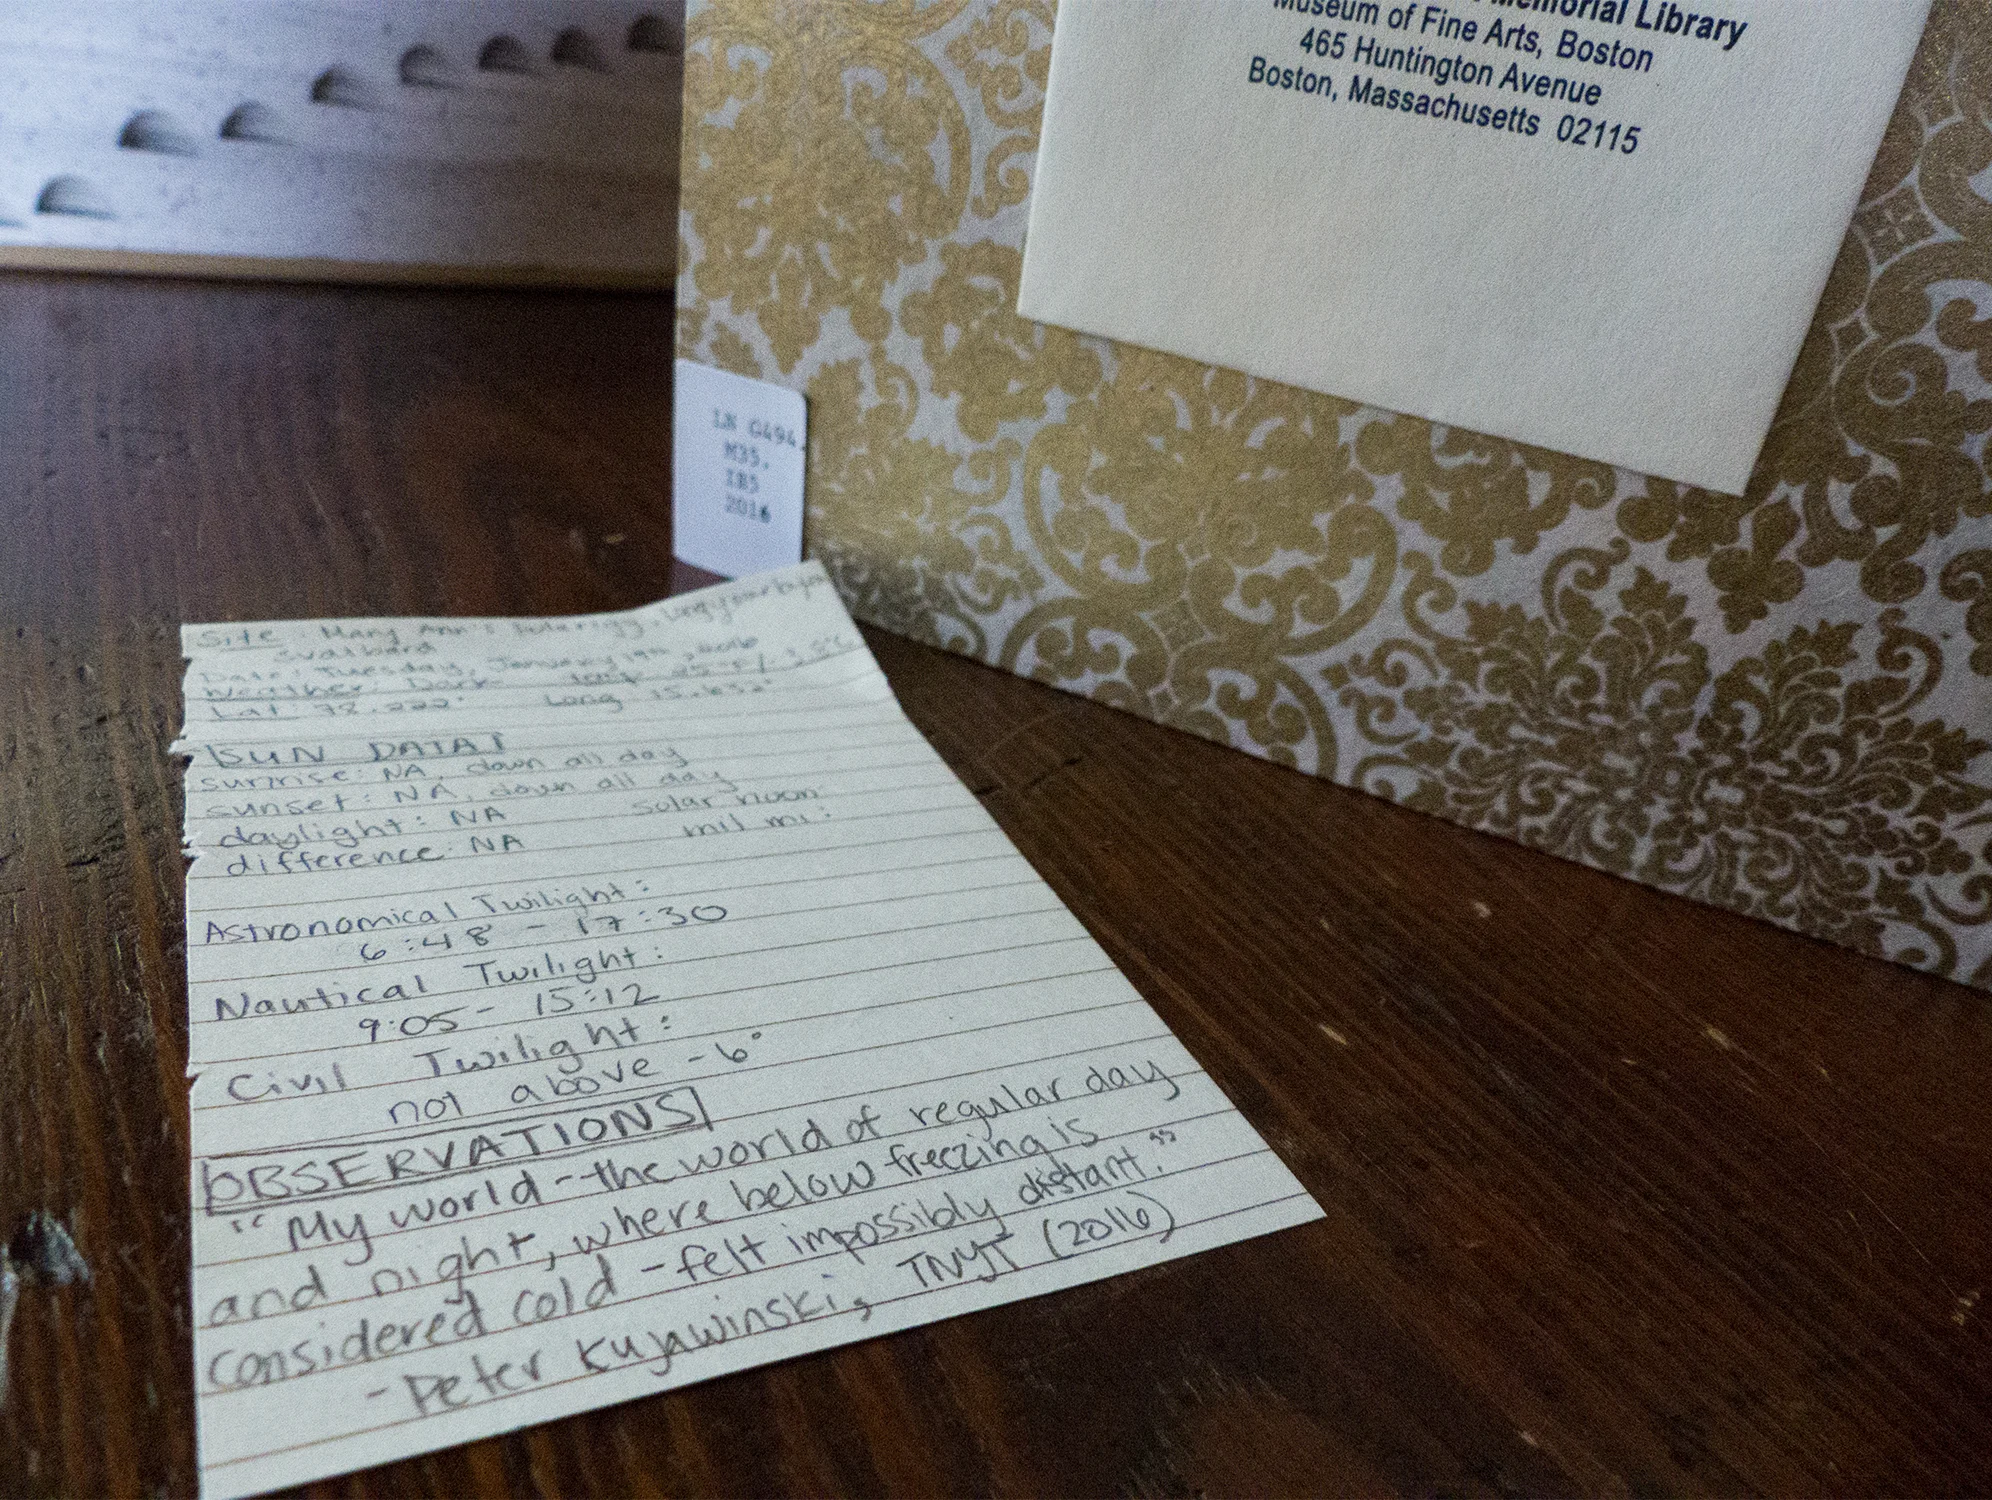 Memorial Library
Museum of Fine Arts, Boston
465 Huntington Avenue
Boston, Massachusetts 02115
LN G494.
M35.
2016
Site: Mary Ann's Polarrigg, Longyearbyen
Svalbard
Date: Tuesday, January 19th, 2016
Weather: Dark
Lat: 78.222° Long 15.652°
SUN DATA
sunrise: NA, down all day
sunset: NA, down all day
daylight: NA solar noon
difference: NA mil mi:
Astronomical Twilight:
6:48 - 17:30
Nautical Twilight:
9:05 - 15:12
Civil Twilight:
not above -6°
OBSERVATIONS
"My world--the world of regular day
and night, where below freezing is
considered cold - felt impossibly distant."
- Peter Kujawinski, TNYT (2016)